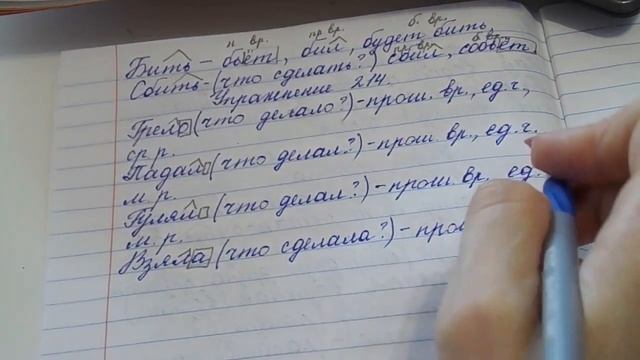 н. вр. пр. вр. б. вр.
Бить – бьёт, бил, будет бить,
пр. вр. б. вр.
Сбить – (что сделать?) сбил, собьёт.
Упражнение 214.
Грело (что делало?) – прош. вр., ед. ч.,
ср. р.
Падал (что делал?) – прош. вр., ед. ч.
м. р.
Гулял (что делал?) – прош. вр., ед.
м. р.
Взяла (что сделала?) – про